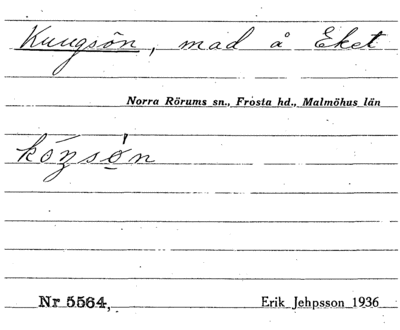 Kungsön, mad å Eket
Norra Rörums sn., Frosta hd., Malmöhus län
Nr 5564,
Erik Jehpsson 1936